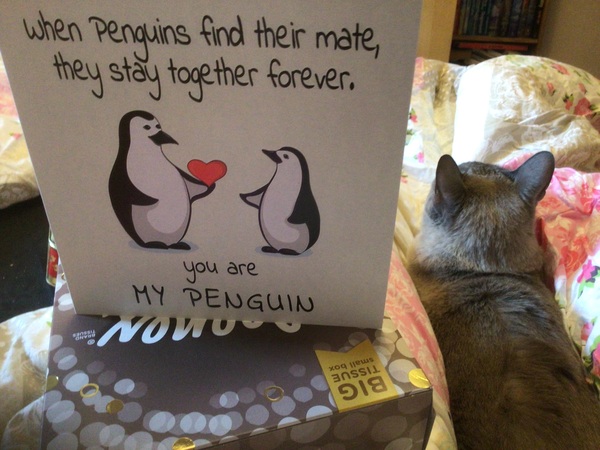 when Penguins find their mate,
they stay together forever.
you are
MY PENGUIN
BIG
TISSUE
small box